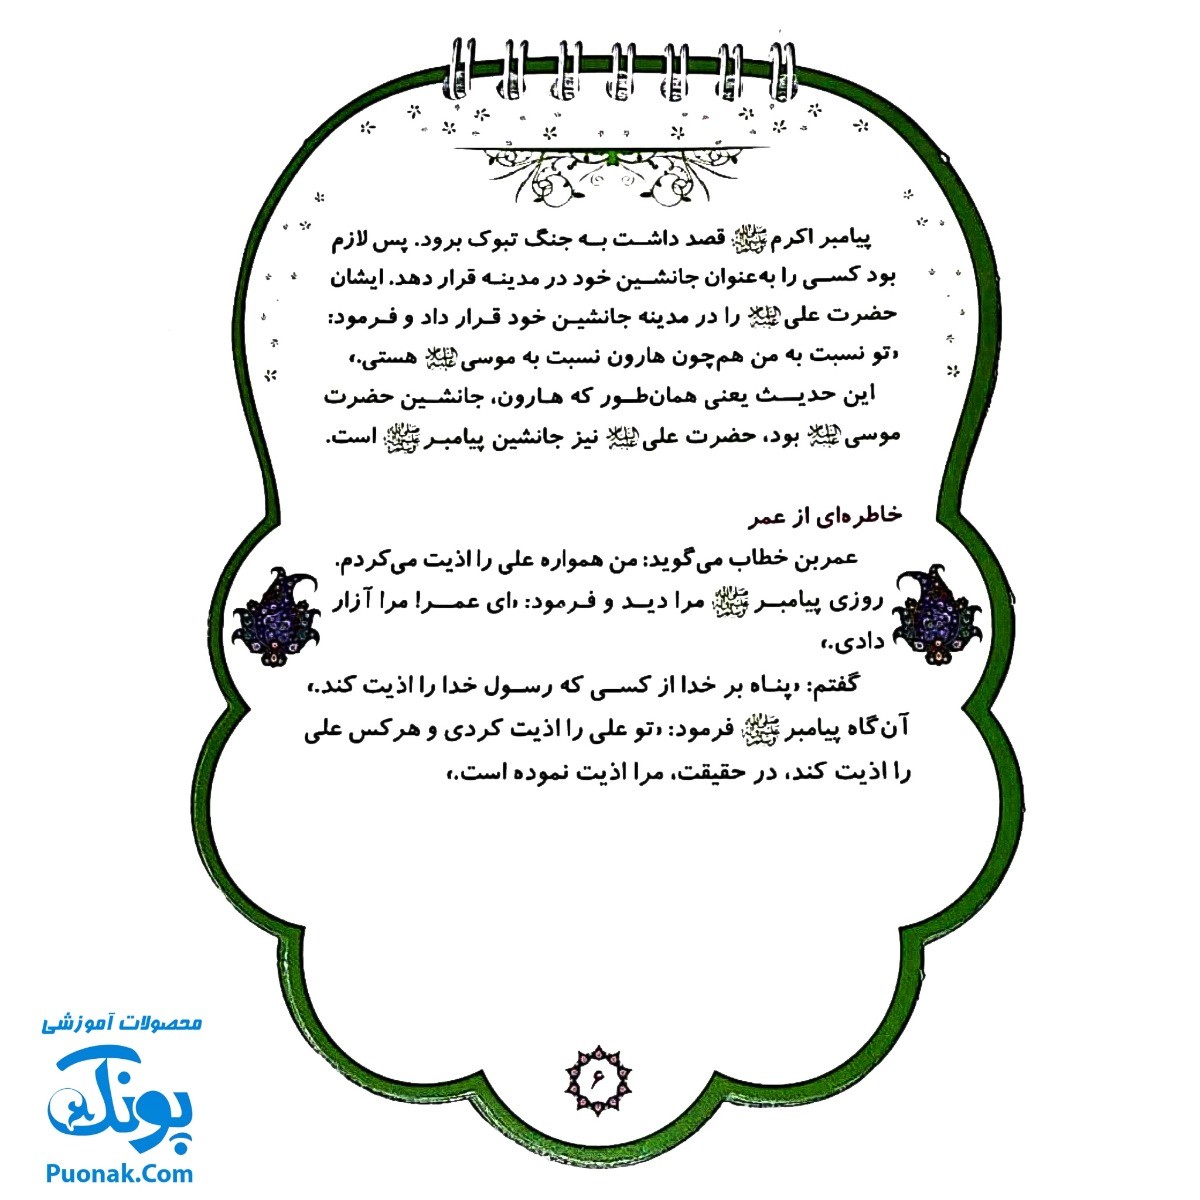 پیامبر اکرمﷺ قصد داشت به جنگ تبوک برود. پس لازم
بود کسی را به‌عنوان جانشین خود در مدینه قرار دهد. ایشان
حضرت علی علیه‌السلام را در مدینه جانشین خود قرار داد و فرمود:
«تو نسبت به من هم‌چون هارون نسبت به موسی علیه‌السلام هستی.»
این حدیث یعنی همان‌طور که هارون، جانشین حضرت
موسی علیه‌السلام بود، حضرت علی علیه‌السلام نیز جانشین پیامبرﷺ است.
خاطره‌ای از عمر
عمربن خطاب می‌گوید: من همواره علی را اذیت می‌کردم.
روزی پیامبرﷺ مرا دید و فرمود: «ای عمر! مرا آزار
دادی.»
گفتم: «پناه بر خدا از کسی که رسول خدا را اذیت کند.»
آن‌گاه پیامبرﷺ فرمود: «تو علی را اذیت کردی و هرکس علی
را اذیت کند، در حقیقت، مرا اذیت نموده است.»
۶
محصولات آموزشی
پونک
Puonak.Com